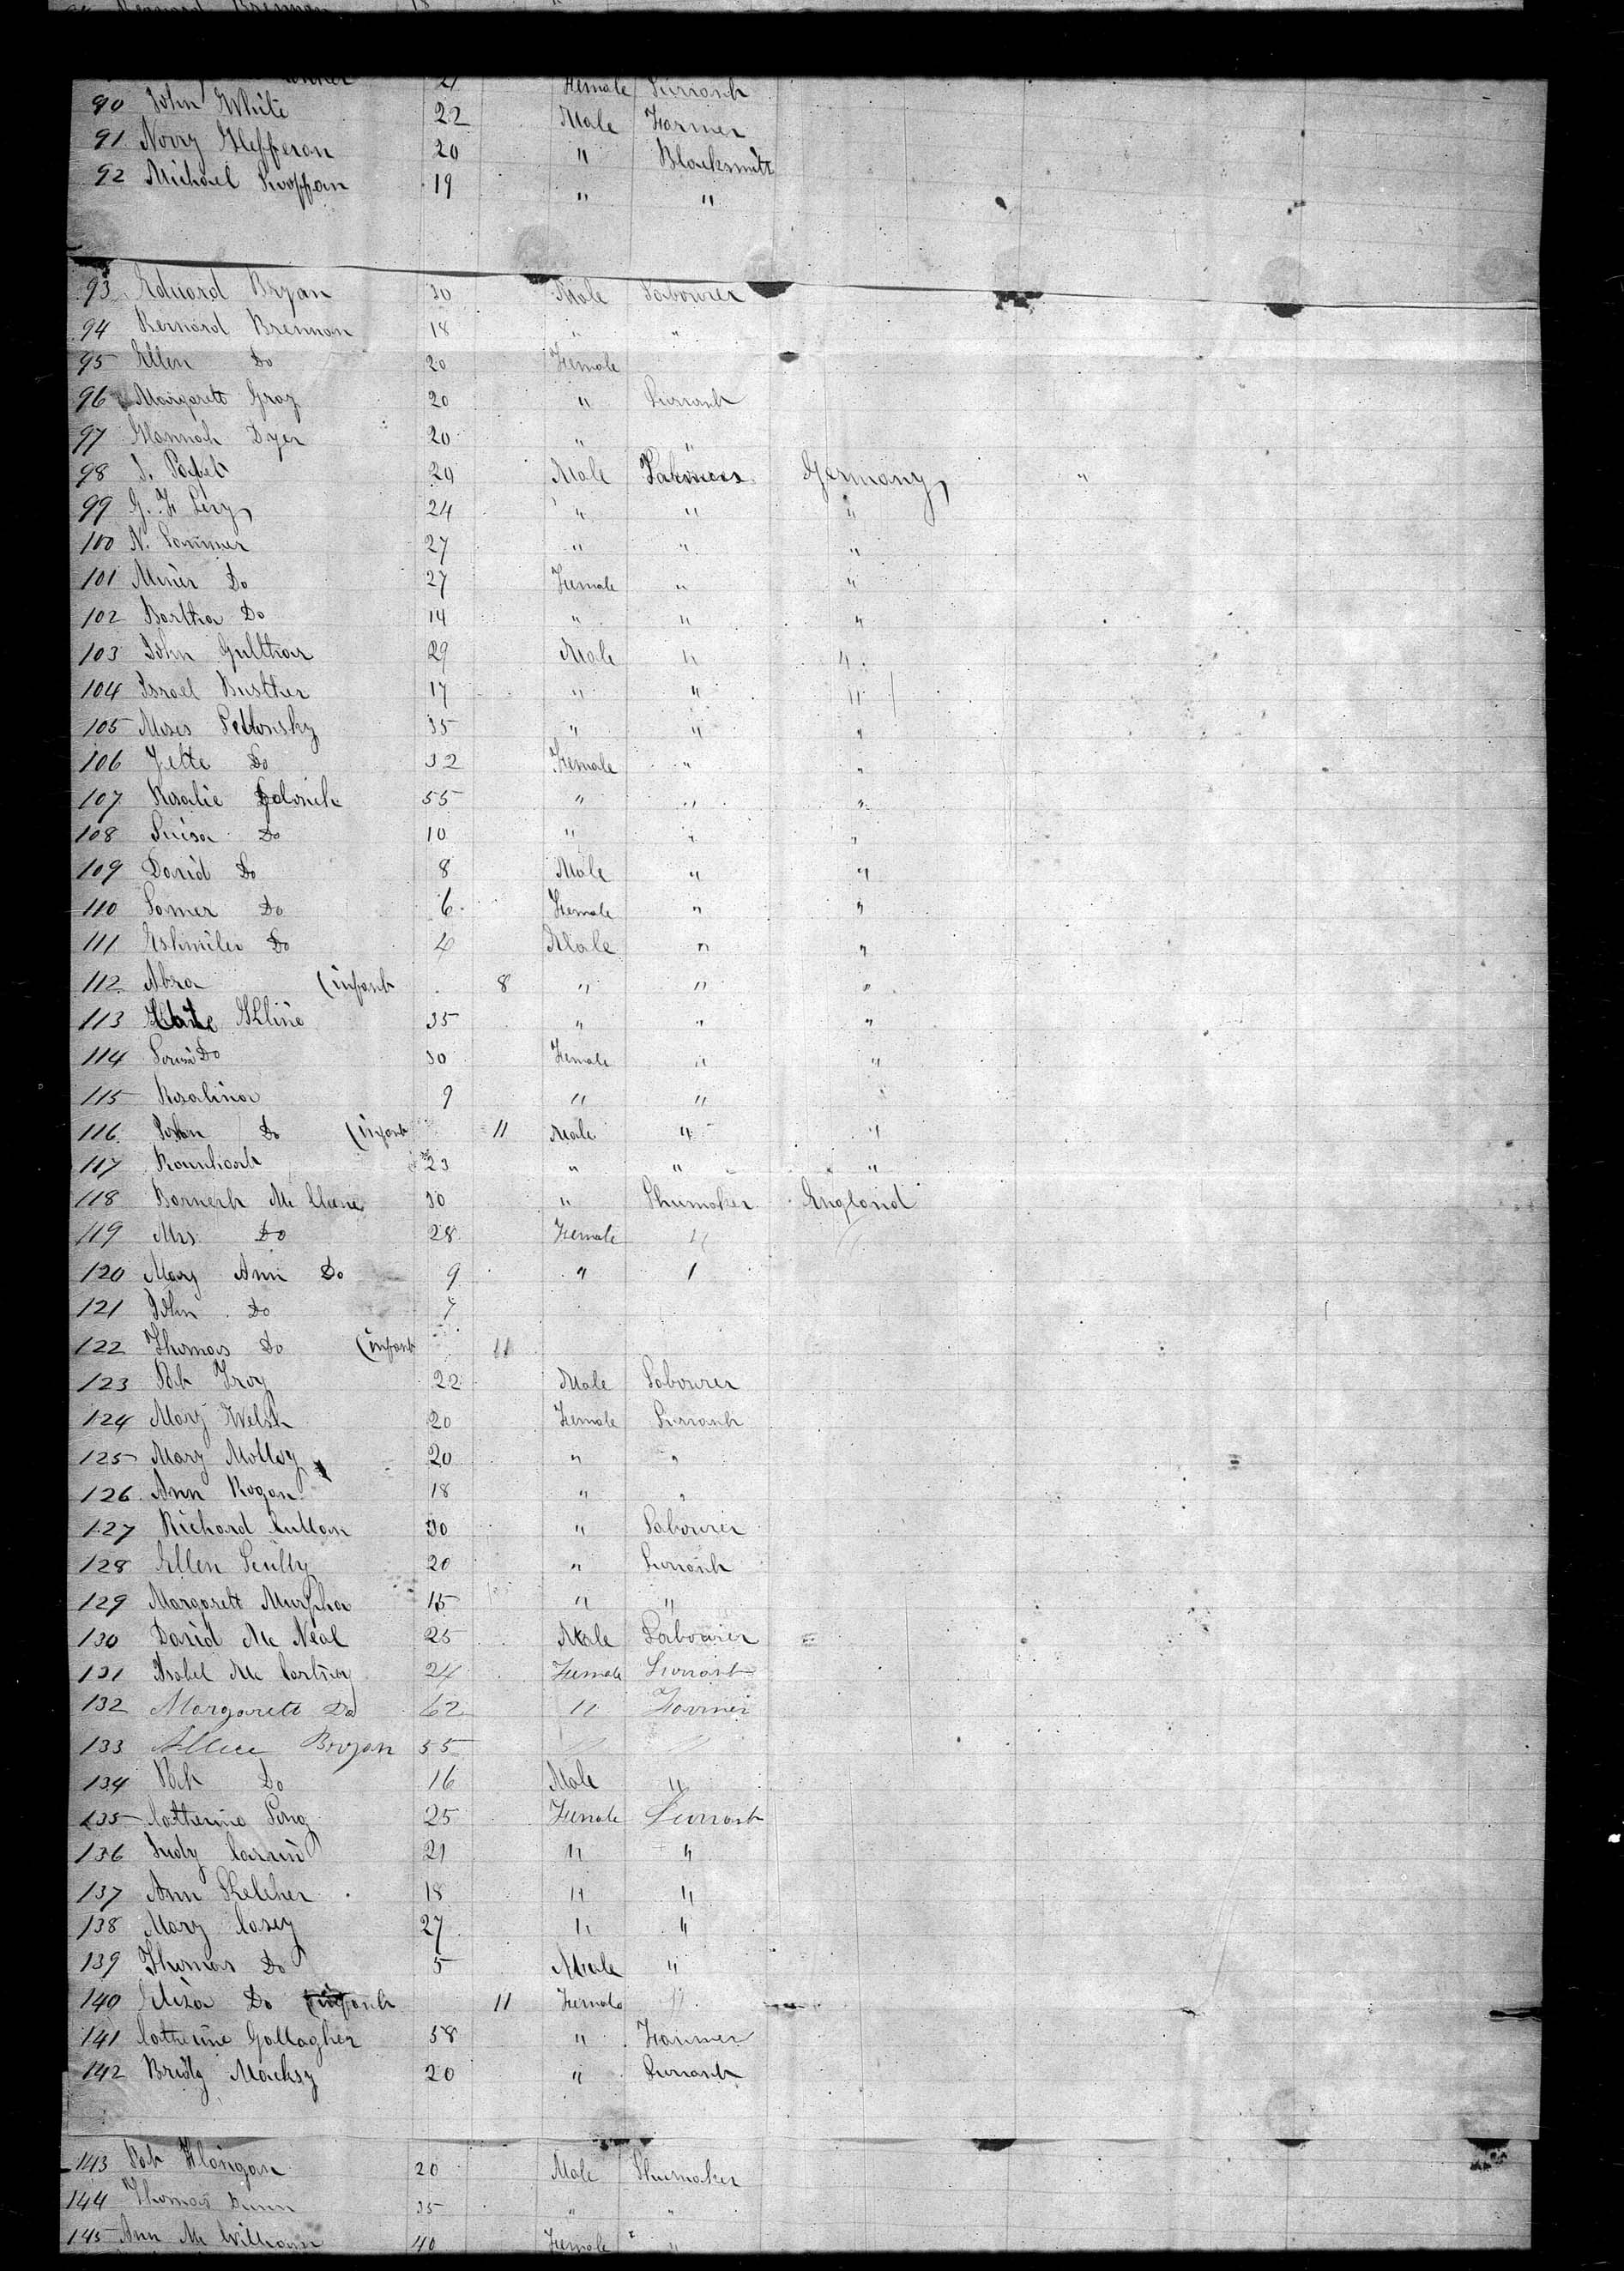 Bernard Brennan 18
21 Female Servant
90 John White 22 Male Farmer
91 Norry Hefferan 20 " Blacksmith
92 Michael 19 " "
93 Edward Bryan 30 Male Labourer
94 Bernard Brennan 18 " "
95 Ellen Do 20 Female
96 Margarett Gray 20 " Servant
97 Hannah Dyer 20 " "
98 20 Male Labourer Germany "
99 G. F Levy 24 " " "
100 N. Sommer 27 " " "
101 Minër Do 27 Female " "
102 Bartha Do 14 " " "
103 John Gulthar 29 Male " "
104 Israel Busther 17 " " "
105 Moses 35 " " "
106 Jette Do 32 Female " "
107 Rosalie 55 " " "
108 Luisa Do 10 " " "
109 David Do 8 Male " "
110 Somer Do 6 Female " "
111 Do 4 Male " "
112 Abra (infant 8 " " "
113 Kline 35 " " "
114 Do 30 Female " "
115 Rosalina 9 " " "
116 Do (infant 11 Male " "
117 23 " " "
118 30 " Shumaker England
119 Mrs Do 28 Female " "
120 Mary Ann Do 9 " "
121 John Do 7
122 Thomas Do (infant 11
123 Pat Troy 22 Male Labourer
124 Mary Welsh 20 Female Servant
125 Mary Molloy 20 " "
126 Ann Rogan 18 " "
127 Richard Cullan 30 " Labourer
128 Ellen Scully 20 " Servant
129 Margarett Murpha 15 " "
130 David Mc Neal 25 Male Labourer
131 Isabel Mc Cartney 24 Female Servant
132 Margarett Do 62 " Farmer
133 Bryan 55 " "
134 Pat Do 16 Male "
135 Catherine Long 25 Female Servant
136 Judy 21 " "
137 Ann Keleher 18 " "
138 Mary Casey 27 " "
139 Thomas Do 5 Male "
140 Eliza Do (infant 11 Female "
141 Catherine Gallagher 58 " Farmer
142 Bridg Macksy 20 " Servant
143 Pat Flanigan 20 Male Shumaker
144 Thomas Dunn 35 " "
145 Ann Mc William 40 Female "